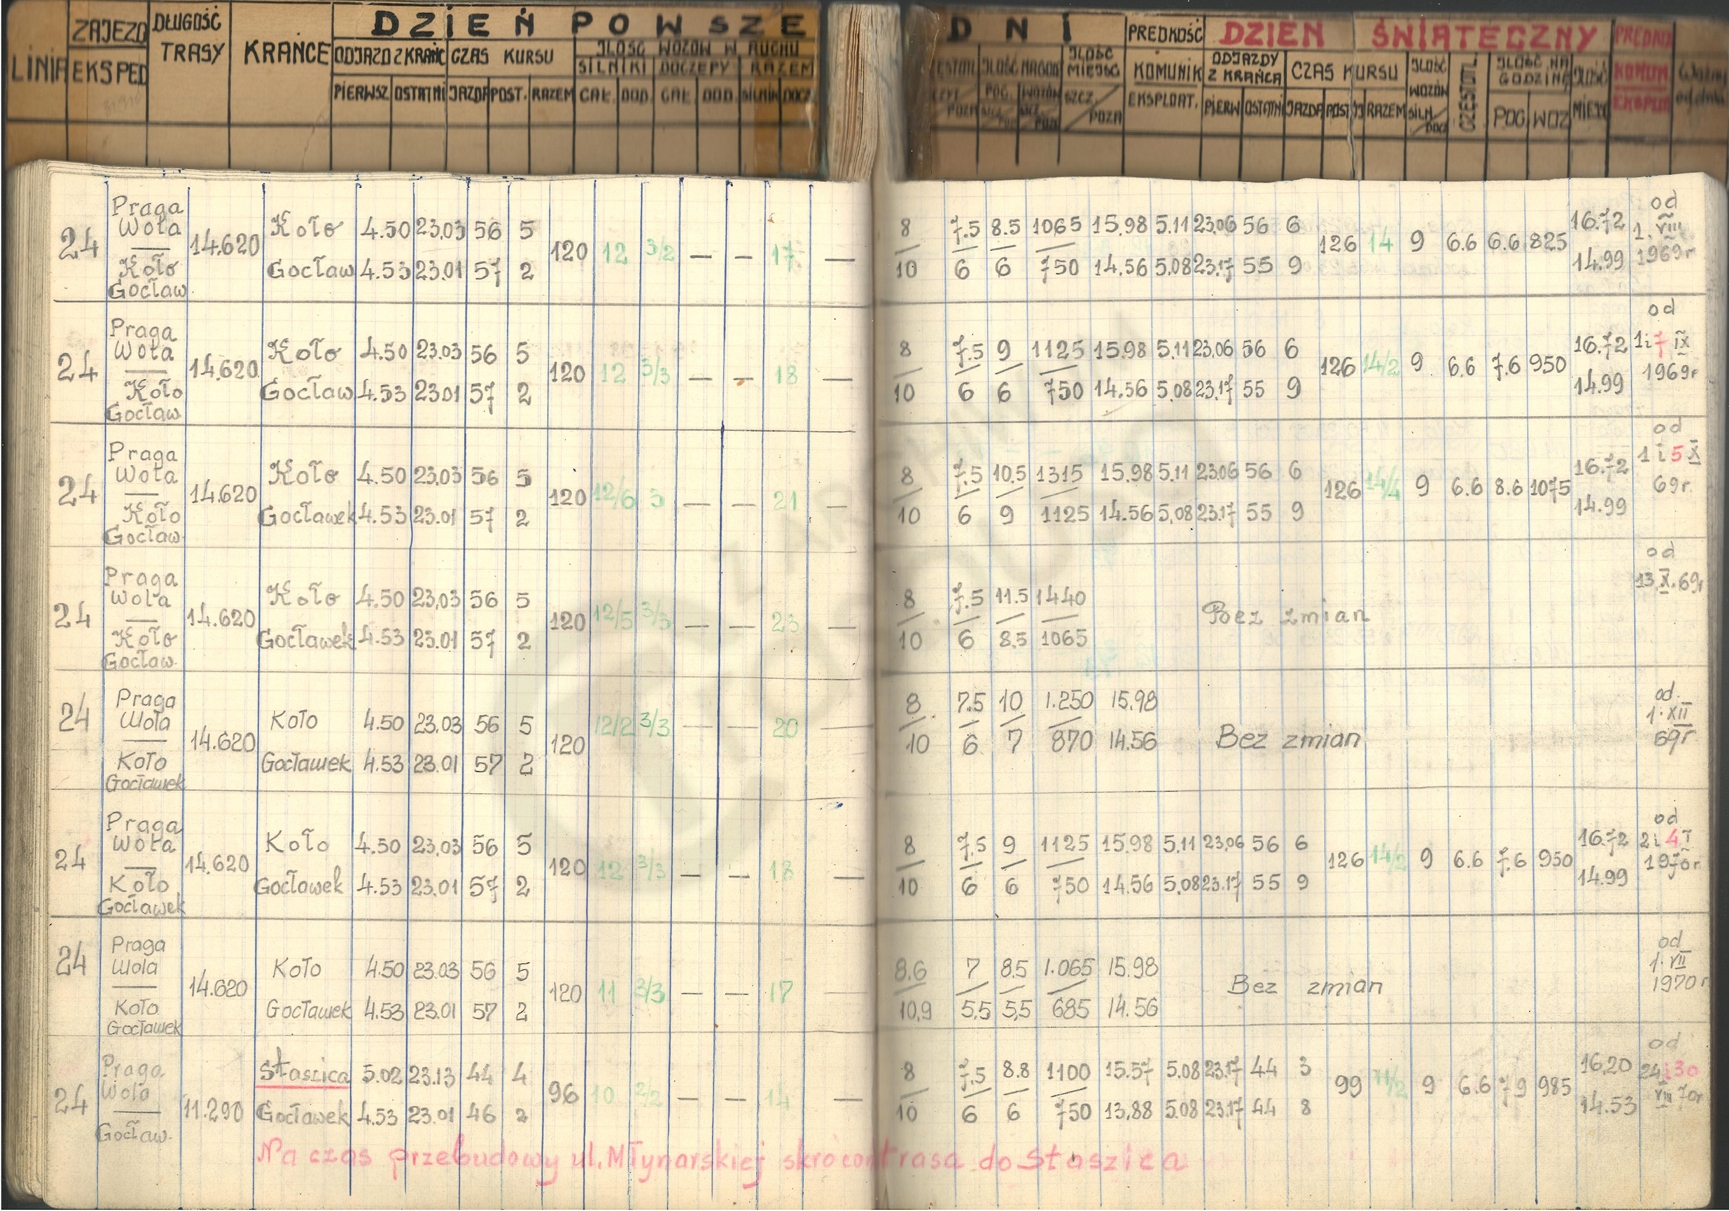 ZAJEZD DŁUGOŚĆ DZIEŃ POWSZE DNI PRĘDKOŚĆ DZIEŃ ŚWIĄTECZNY
LINIA EKSPED TRASY KRAŃCE ODJAZD Z KRAŃC CZAS KURSU ILOŚĆ WOZÓW W RUCHU ILOŚĆ MIEJSC KOMUNIK ODJAZDY Z KRAŃCA CZAS KURSU ILOŚĆ WOZÓW ILOŚĆ NA GODZINĘ
SILNIKI DOCZEPY RAZEM
PIERWSZ OSTATNI JAZDA POST. RAZEM CAŁ. DOD. CAŁ. DOD. SILNIK DOCZ EKSPLOAT. PIERW OSTATN JAZDA POST RAZEM SILN. POC WOZ
24 Praga Wola — Koło Gocław 14.620 Koło 4.50 23,03 56 5 120 12 3/2 — — 17 — 8 7.5 8.5 1065 15,98 5.11 23,06 56 6 126 14 9 6.6 6.6 825 16.72 od 1. VIII 1969r
Gocław 4.53 23.01 57 2 10 6 6 750 14,56 5.08 23.17 55 9 14.99
24 Praga Wola — Koło Gocław 14.620 Koło 4.50 23,03 56 5 120 12 3/3 — — 18 — 8 7.5 9 1125 15.98 5.11 23.06 56 6 126 14/2 9 6.6 7,6 950 16.72 od 1 i 7 IX 1969r
Gocław 4.53 23.01 57 2 10 6 6 750 14.56 5.08 23.17 55 9 14.99
24 Praga Wola — Koło Gocław. 14.620 Koło 4.50 23,03 56 5 120 12/6 3 — — 21 — 8 7.5 10,5 1315 15.98 5.11 23.06 56 6 126 14/4 9 6.6 8.6 1075 16.72 od 1 i 5 X 69r.
Gocławek 4.53 23.01 57 2 10 6 9 1125 14.56 5,08 23.17 55 9 14.99
24 Praga Wola — Koło Gocław. 14.620 Koło 4.50 23,03 56 5 120 12/5 3/3 — — 23 — 8 7.5 11.5 1440 Bez zmian od 13.X.69r
Gocławek 4.53 23.01 57 2 10 6 8.5 1065
24 Praga Wola — Koło Gocławek 14.620 Koło 4.50 23,03 56 5 120 12/2 3/3 — — 20 — 8 7.5 10 1.250 15.98 Bez zmian od. 1.XII 69r
Gocławek 4.53 23.01 57 2 10 6 7 870 14.56
24 Praga Wola — Koło Gocławek 14.620 Koło 4.50 23,03 56 5 120 12 3/3 — — 18 — 8 7.5 9 1125 15.98 5,11 23,06 56 6 126 14/2 9 6.6 7,6 950 16.72 od 2 i 4 I 1970r
Gocławek 4.53 23,01 57 2 10 6 6 750 14.56 5,08 23.17 55 9 14.99
24 Praga Wola — Koło Gocławek 14.620 Koło 4.50 23.03 56 5 120 11 3/3 — — 17 — 8.6 7 8.5 1.065 15.98 Bez zmian od 1.VII 1970r
Gocławek 4.53 23.01 57 2 10,9 5.5 5,5 685 14.56
24 Praga Wola — Gocław. 11.290 Staszica 5.02 23.13 44 4 96 10 2/2 — — 14 — 8 7.5 8.8 1100 15.57 5.08 23.17 44 3 99 11/2 9 6.6 7 9 985 16,20 od 24 i 30 VIII 70r
Gocławek 4.53 23.01 46 2 10 6 6 750 13,88 5.08 23,17 44 8 14.53
Na czas przebudowy ul. Młynarskiej skrócont trasa do Staszica